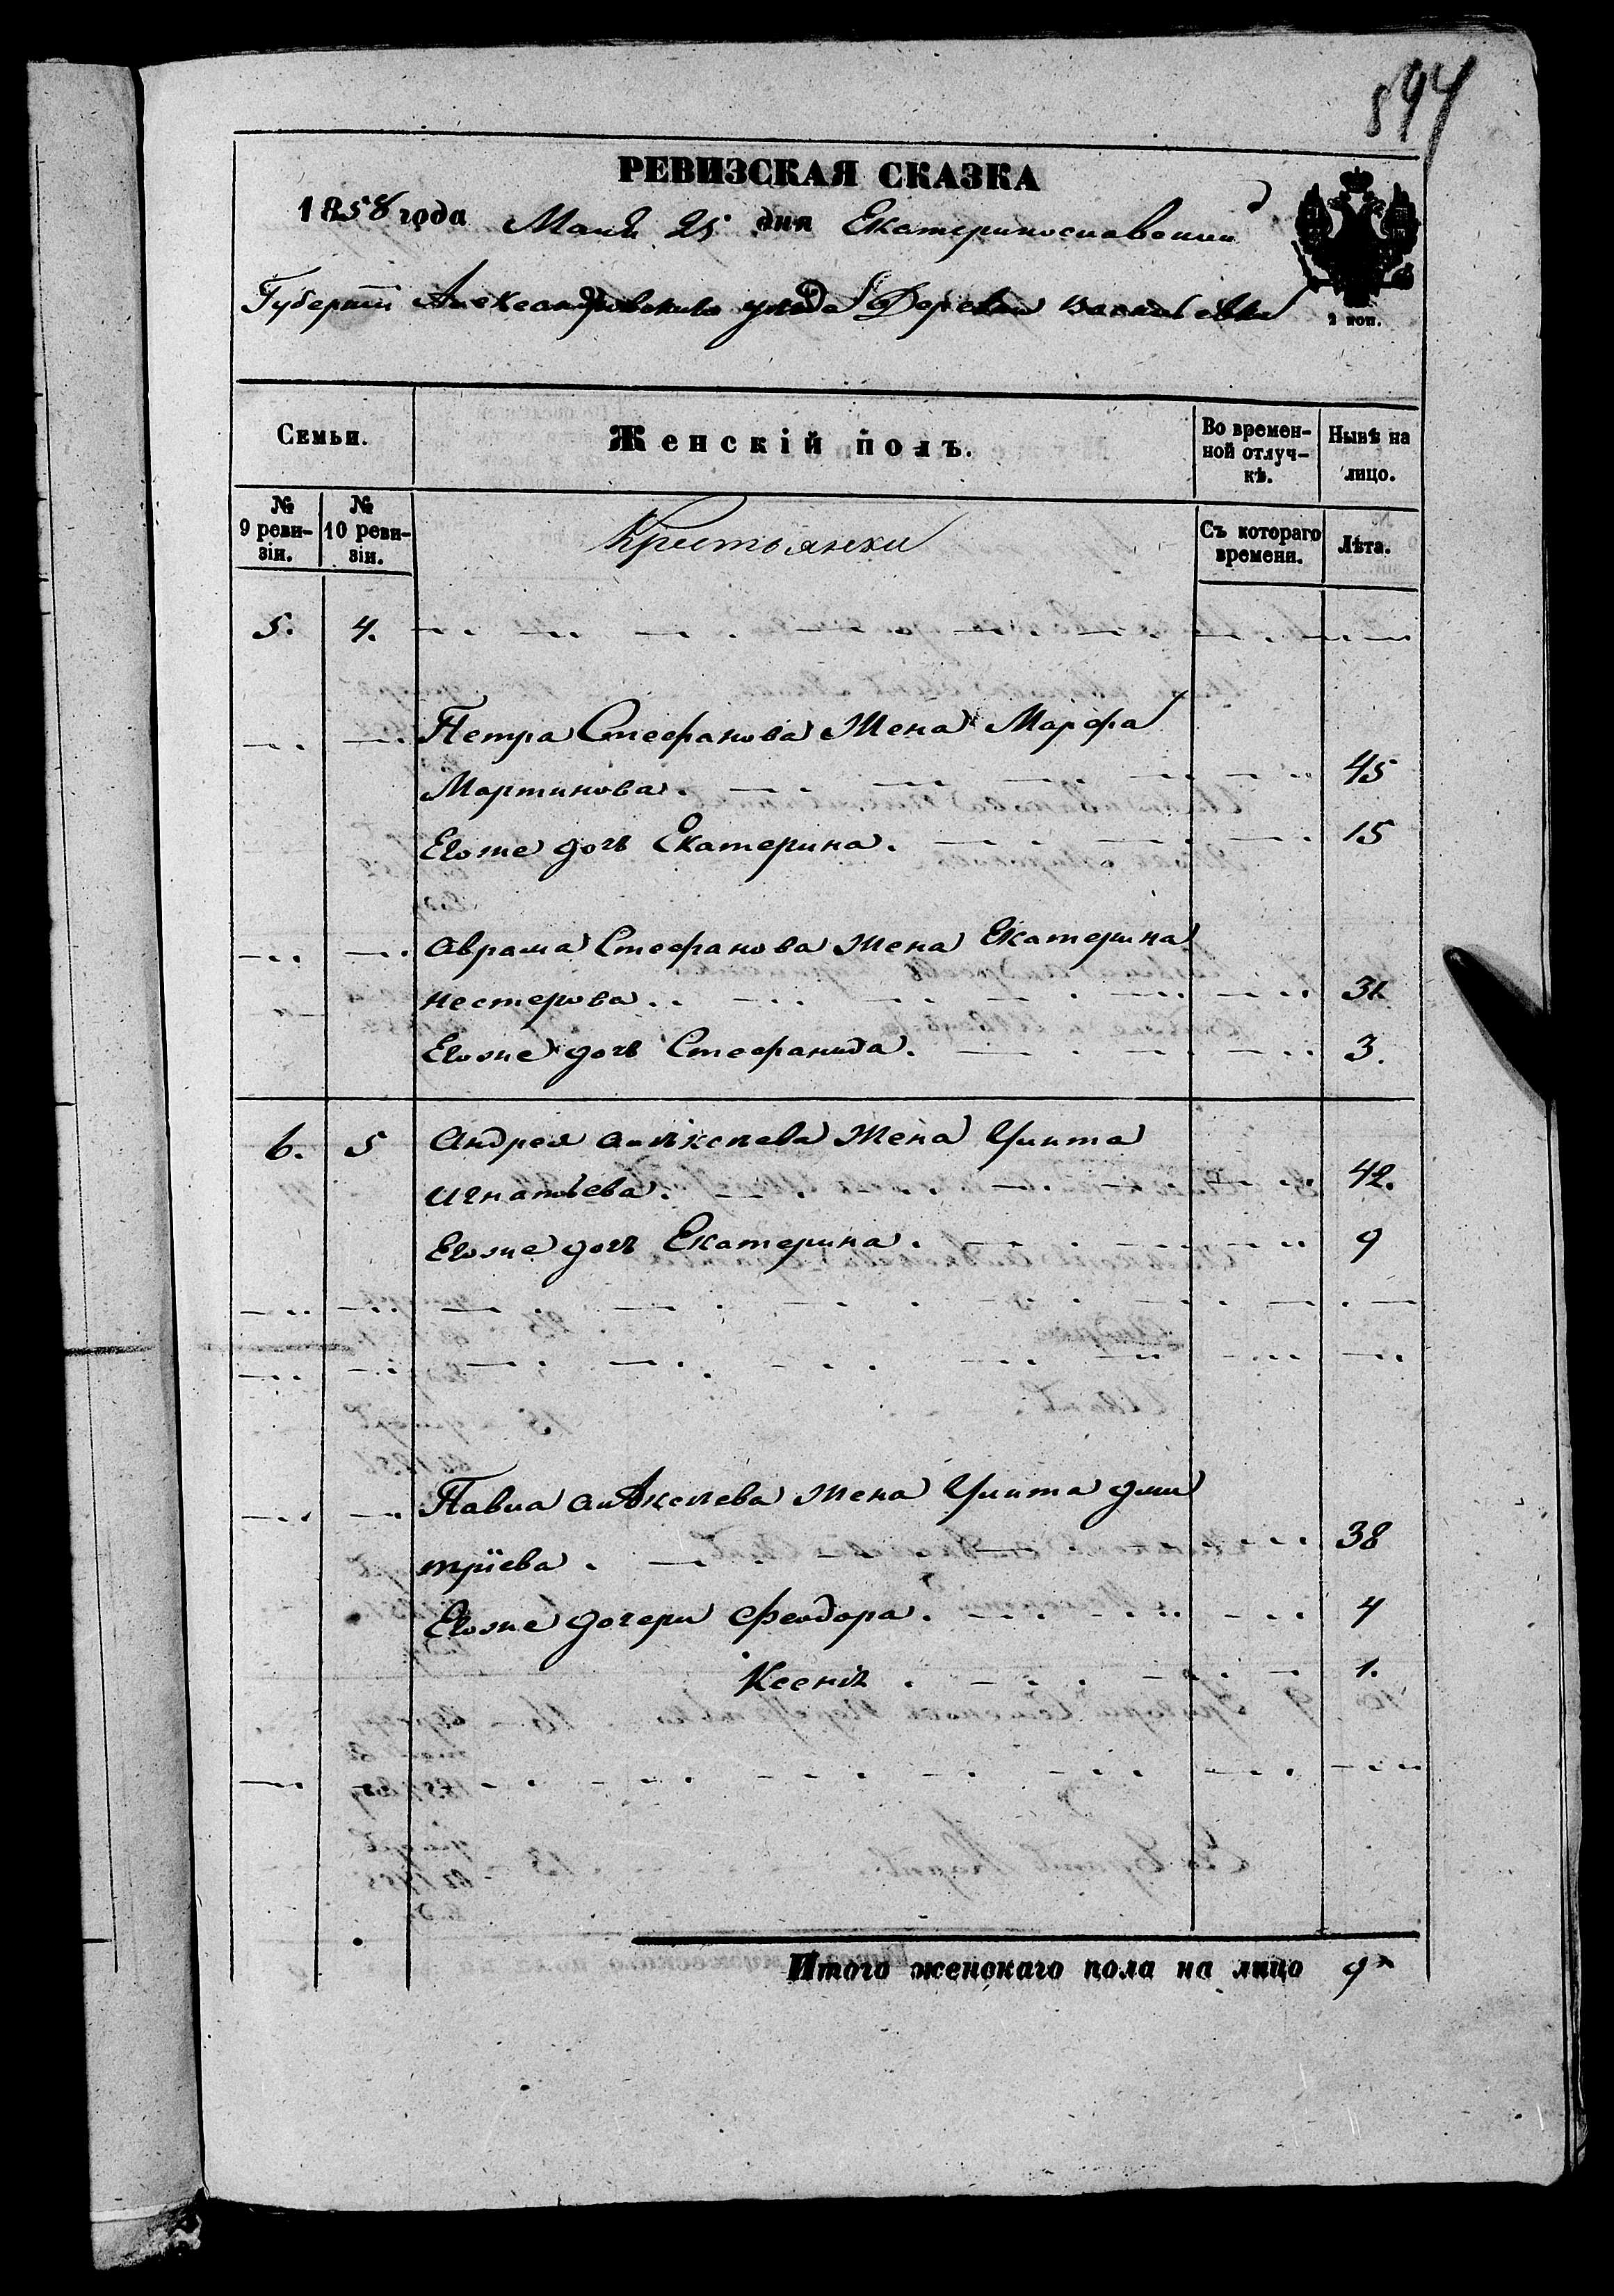 594
РЕВИЗСКАЯ СКАЗКА
1858 года Маия 25 дня Екатеринославской
Губернiи Александровскаго уезда Деревни Васильевки
2 коп.
Семьи. Женскій полъ. Во времен-
ной отлуч-
кѣ. Нынѣ на
лицо.
№
9 реви-
зіи. №
10 реви-
зіи. Крестьянки Съ котораго
времени. Лѣта.
5. 4.
Петра Стефанова Жена Марфа
Мартинова. 45
Егоже дочь Екатерина. 15
Аврама Стефанова жена Екатерина
Нестерова. 31
Егоже дочь Стефанида. 3.
6. 5 Андрея Алѣксѣева Жена Улита
Игнатьева. 42.
Егоже дочь Екатерина. 9
Павла Алѣксѣева жена Улита Дми
трiева. 38
Егоже дочери Феодора. 4
Ксенiя. 1.
Итого женскаго пола на лицо 9